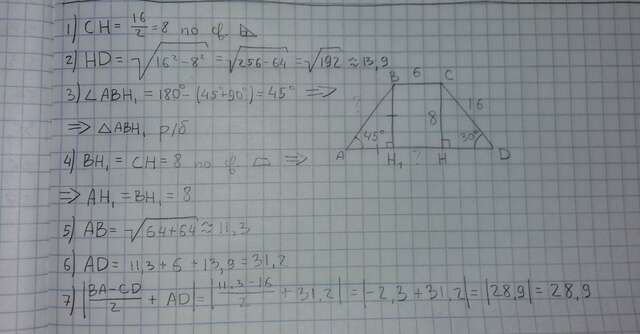 1) CH = 16/2 = 8 по св ◺
2) HD = √(16² - 8²) = √(256 - 64) = √192 ≈ 13,9
3) ∠ABH₁ = 180° - (45°+90°) = 45° ⇒
⇒ △ABH₁ р/б
4) BH₁ = CH = 8 по св ▭ ⇒
⇒ AH₁ = BH₁ = 8
5) AB = √(64+64) ≈ 11,3
6) AD = 11,3 + 6 + 13,9 = 31,2
7) |(BA-CD)/2 + AD| = |(11,3-16)/2 + 31,2| = |-2,3 + 31,2| = |28,9| = 28,9
B 6 C
? 8 16
45° 30°
A H₁ ? H D